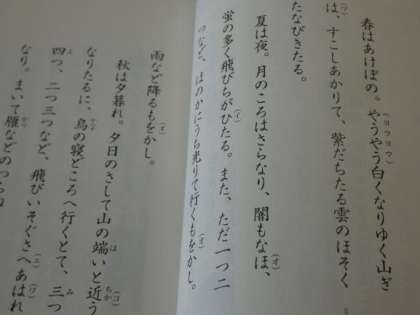 春はあけぼの。やうやう白くなりゆく山ぎ
は、すこしあかりて、紫だちたる雲のほそく
たなびきたる。
夏は夜。月のころはさらなり、闇もなほ、
蛍の多く飛びちがひたる。また、ただ一つ二
つなど、ほのかにうち光りて行くもをかし。
雨など降るもをかし。
秋は夕暮れ。夕日のさして山の端いと近う
なりたるに、烏の寝どころへ行くとて、三つ
四つ、二つ三つなど、飛びいそぐさへあはれ
なり。まいて雁などのつらね